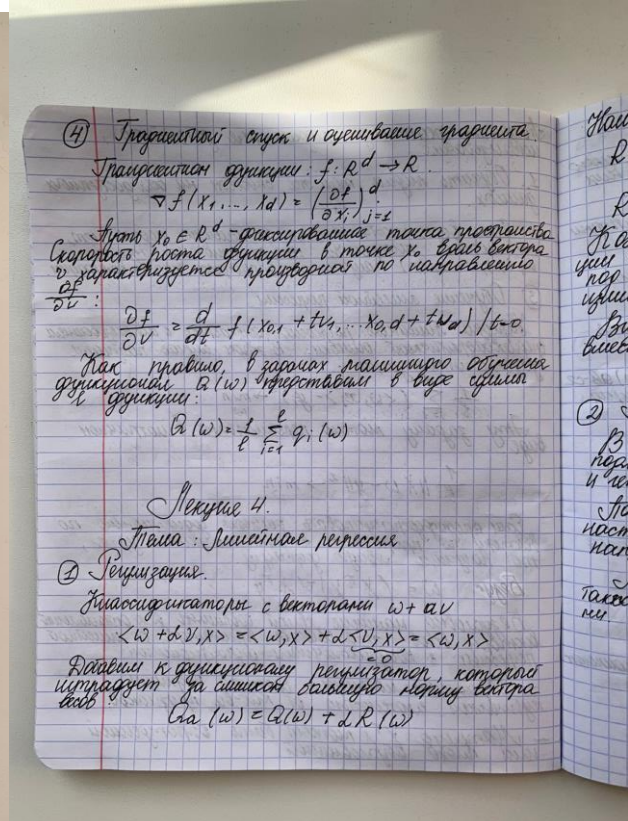 ④ Градиентный спуск и оценивание градиента.
Градиентном функции: f: R^d → R.
∇f(x₁, ..., x_d) = (∂f/∂x_j)^d_{j=1}
Пусть x₀ ∈ R^d - фиксированная точка пространства
Скорость роста функции в точке x₀ вдоль вектора
v характеризуется производной по направлению
∂f/∂v :
∂f/∂v = d/dt f(x₀,₁ + tv₁, ... x₀,d + tv_d) / t=0.
Как правило, в задачах машинного обучения
функционал Q(w) представим в виде суммы
ℓ функций:
Q(w) = 1/ℓ ∑^ℓ_{i=1} q_i(w)
Лекция 4.
Тема: Линейная регрессия
① Регулизация.
Классификаторы с векторами w + αv
<w + αv, x> = <w, x> + α<v, x> = <w, x>
= 0
Добавим к функционалу регулизатор, который
штрафует за слишком большую норму вектора
весов:
Qα(w) = Q(w) + αR(w)
R
R
под
②
В
и